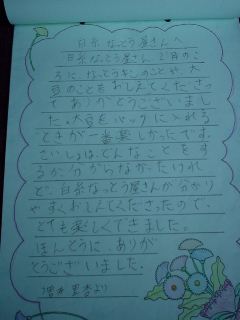 白糸なっとう屋さんへ
白糸なっとう屋さん、2月のこ
ろに、なっとうキンのことや大
豆のことをおしえてくださっ
てありがとうございまし
た。大豆をパックに入れる
ときが一番楽しかったです。
さいしょは、どんなことをす
るか分からなかったけれ
ど、白糸なっとう屋さんが分かり
やすくおしえてくださったので、
とても楽しくできました。
ほんとうに、ありが
とうございました。
より